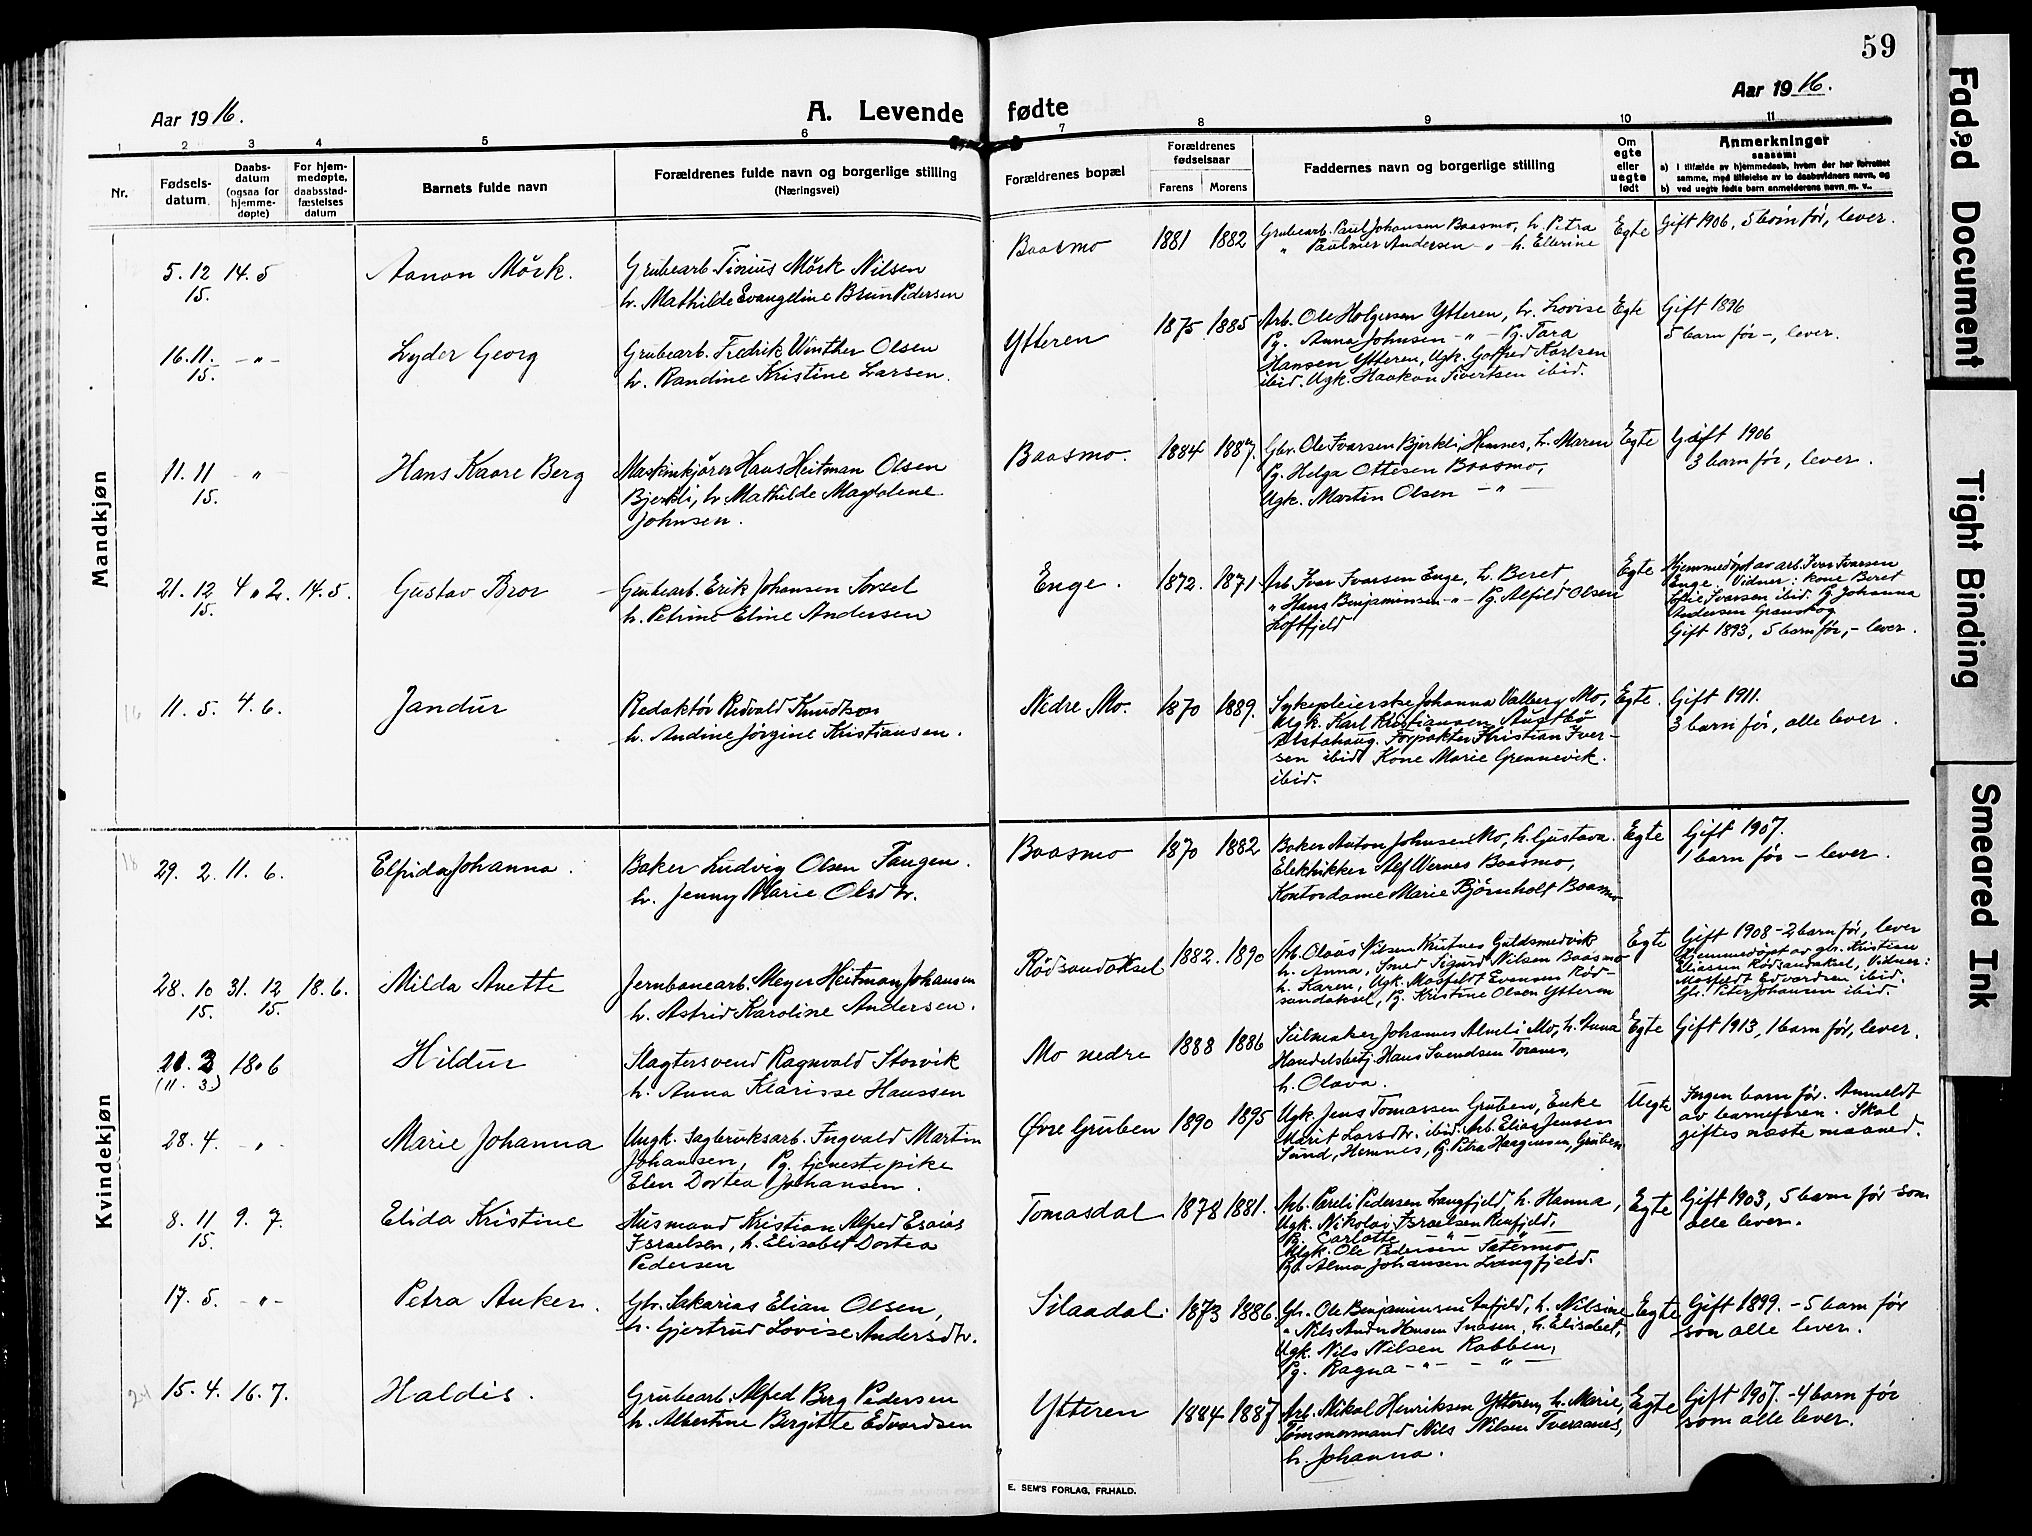 59
Aar 1916.
A. Levende
fødte
Aar 1916.
1 2 3 4 5 6 7 8 9 10 11
Nr.
Fødsels-
datum
Daabs-
datum
(ogsaa for
hjemme-
døpte)
For hjem-
medøpte,
daabsstad-
fæstelses
datum
Barnets fulde navn
Forældrenes fulde navn og borgerlige stilling
(Næringsvei)
Forældrenes bopæl
Forældrenes
fødselsaar
Farens
Morens
Faddernes navn og borgerlige stilling
Om
egte
eller
uegte
født
Anmerkninger
saasom:
a) I tilfælde av hjemmedaab, hvem der har forrettet
samme, med tilføielse av to daabsvidners navn, og
b) ved uegte fødte barn anmelderens navn m. v..
Mandkjøn
5. 12 14. 5
15.
Aanon Mörk.
Grubearb. Tinius Mörk Nilsen
h. Mathilde Evangeline Brun Pedersen
Baasmo
1881 1882
Grubearb. Paul Johansen Baasmo, h. Petra
" Paulmer Andersen - " - h. Ellerine
Egte
Gift 1906, 5 barn før, lever.
16. 11. - " -
15.
Lyder Georg
Grubearb. Fredrik Winther Olsen
h. Randine Kristine Larsen.
Ytteren
1875 1885
Arb. Ole Holgersen Ytteren, h. Lovise
Pg. Anna Johnsen - " - Pg. Tara
Hansen Ytteren, Ugk. Gotfred Karlsen
ibid. Ugk. Haakon Sivertsen ibid.
Egte
Gift 1896
5 barn før -, lever.
11. 11 - " -
15.
Hans Kaare Berg
Maskinkjører Hans Heitman Olsen
Bjerkli, h. Mathilde Magdalene
Johnsen.
Baasmo.
1884 1887.
Gbr. Ole Ivarsen Bjerkli, Hemnes, h. Maren
Pg. Helga Ottesen Baasmo,
Ugk. Martin Olsen - " -
Egte
Gift 1906
3 barn før, lever.
21. 12 4. 2. 14. 5.
15.
Gustav Bror
Grubearb. Erik Johansen Sveel
h. Petrine Eline Andersen
Enge.
1872. 1871
Arb. Ivar Ivarsen Enge, h. Beret
" Hans Benjaminsen - " - Pg. Alfild Olsen
Loftfjeld
Egte
Hjemmedøpt av arb. Iver Ivarsen
Enge. Vidner: kone Beret
Sofie Ivarsen ibid. Pg. Johanna
Andersen Granskog
Gift 1893, 5 barn før, - lever.
16 11. 5. 4. 6.
Jandur
Redaktør Redvald Knudtson
h. Andine Jørgine Kristiansen.
Nedre Mo.
1870 1889.
Sykepleierske Johanna Valberg Mo,
Ugk. Karl Kristiansen Austbø
Alstahaug. Forpakter Kristian Iver-
sen ibid Kone Marie Grennevik.
ibid.
Egte.
Gift 1911.
3 barn før, alle lever.
Kvindekjøn
18 29. 2. 11. 6.
Elfrida Johanna.
Baker Ludvig Olsen Tangen.
h. Jenny Marie Olsdtr.
Baasmo
1870 1882
Baker Anton Johnsen Mo, h. Gustava
Elektrikker Alf Wernes Baasmo,
Kontordame Marie Bjørnholt Baasmo
Egte
Gift 1907.
1 barn før - lever.
28. 10 31. 12 18. 6.
15. 15.
Milda Anette
Jernbanearb. Meyer Heitman Johansen
h. Astrid Karoline Andersen.
Rödsandaksel
1882. 1890
Arb. Olaus Nilsen Krutnes Guldsmedvik
h. Anna, Smed Sigurd Nilsen Baasmo
h. Karen, Ugk. Mosfeldt Evensen Rød-
sandaksel, Pg. Kristine Olsen Ytteren
Egte
Gift 1908 - 2 barn før, lever
Hjemmedøpt av gbr. Kristian
Eliassen Rødsandaksel, Vidner:
Mosfeldt Edvardsen ibid.
Gbr. Peter Johansen ibid.
21. 3 18. 6
(11. 3.)
Hildur
Slagtersvend Ragnvald Storvik
h. Anna Klarisse Hanssen
Mo nedre
1888 1886
Seilmaker Johannes Alveli Mo, h. Anna
Handelsbetj. Hans Svendsen Toranes,
h. Olava.
Egte
Gift 1913, 1 barn før, lever.
28. 4. - " -
Marie Johanna
Ungk. Sagbruksarb. Ingvald Martin
Johansen, Pg. tjenestepike
Elen Dortea Johansen.
Øvre Gruben
1890 1895
Ugk. Jens Tomassen Gruben, Enke
Marit Larsdtr. ibid. Arb. Elias Jensen
Sund, Hemnes, Pg. Petra Haagensen, Gruben
Uegte
Ingen barn før. Anmeldt
av barnefaren. Skal
giftes næste maaned.
8. 11 9. 7.
15.
Elida Kristine
Husmand Kristian Alfred Esaias
Israelsen, h. Elisabet Dortea
Pedersen
Tomasdal
1878 1881.
Arb. Pareli Pedersen Langfjeld, h. Hanna,
Ugk. Nikolai Israelsen Renfjeld,
Pg. Carlotte - " - - " -
Ugk. Ole Pedersen Sætermo
Pg. Alma Johansen Langfjeld.
Egte
Gift 1903, 5 barn før som
alle lever.
17. 5. - " -
Petra Anker.
Gbr. Sakarias Elian Olsen,
h. Gjertrud Lovise Andersdtr.
Silaadal.
1873 1886.
Gbr. Ole Benjaminsen Aafjeld, h. Nilsine
" Nils Anders Hansen Snasen, h. Elisabet,
Ugk. Nils Nilsen Rabben,
Pg. Ragna - " - - " -
Egte
Gift 1899. - 5 barn før
som alle lever.
24 15. 4. 16. 7.
Haldis.
Grubearb. Alfred Berg Pedersen
h. Albertine Bergitte Edvardsen
Ytteren
1884 1887
Arb. Nikol Henriksen Ytteren, h. Marie,
Tømmermand Nils Nilsen Tveraanes,
h. Johanna.
Egte
Gift 1907. - 4 barn før
som alle lever.
E. SEM'S FORLAG, FR.HALD.
Faded Document
Tight Binding
Smeared Ink